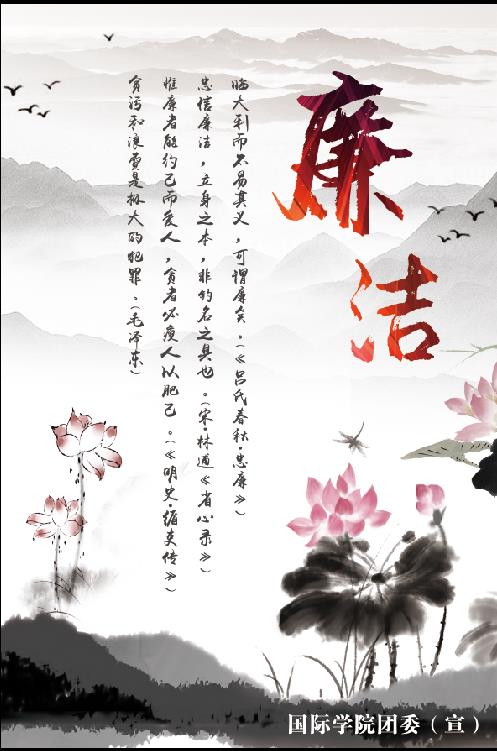 廉洁
临大利而不易其义，可谓廉矣。（《吕氏春秋·忠廉》）
忠信廉洁，立身之本，非钓名之具也。（宋·林逋《省心录》）
惟廉者能约己而爱人，贪者必瘦人以肥己。（《明史·循吏传》）
贪污和浪费是极大的犯罪。（毛泽东）
国际学院团委（宣）